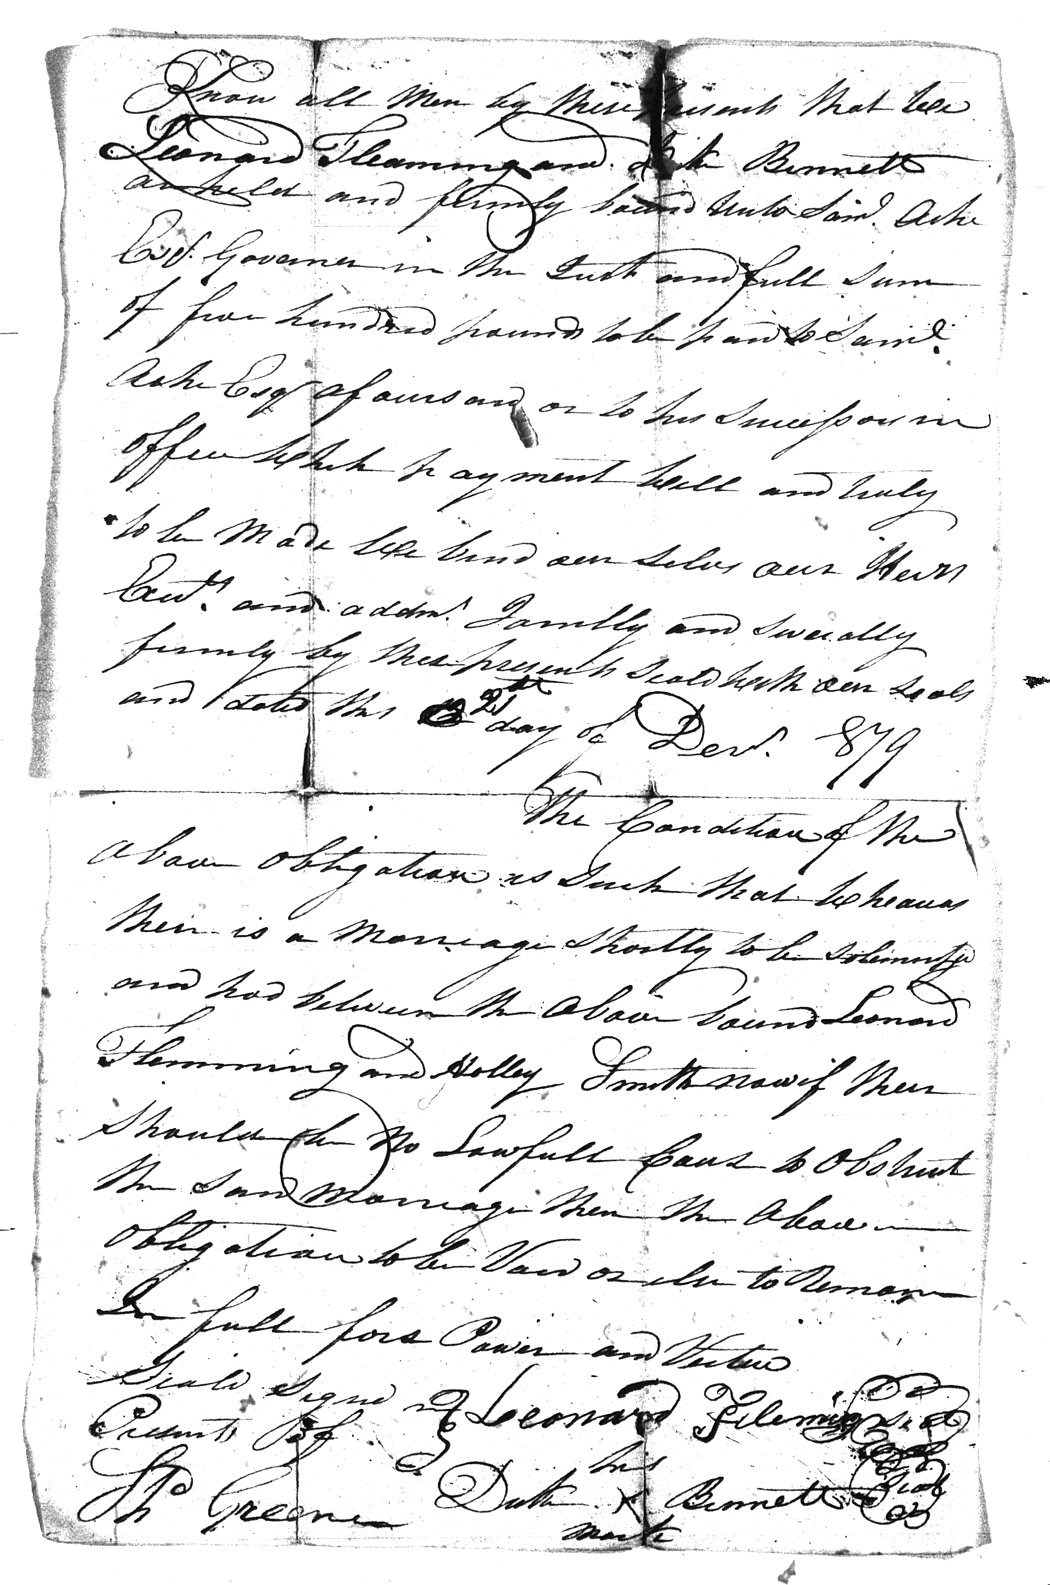 Know all Men by these presents that we
Leonard Fleamming and Bennett
ar held and firmly bound unto Saml. Ashe
Esqr. Governer in the Just and full Sum
of five hundred pounds to be paid to Saml.
Ashe Esqr afoursaid or to his Successors in
office which payment well and truly
to be Made we bind our selves our Heirs
Exets. and addms. Jointly and Severally
firmly by these presents Seald with our Seals
and dated this 21st day of Decr. 879
The Condition of the
above obligation is Such that wheareas
their is a Marriage Shortly to be Solemnized
and had between the above bound Leonard
Flemming and Holley Smith now if their
Should be No Lawfull Caus to Obstruct
the Said Marriage then the above
obligation to be Void or else to Remain
In full fors Power and Vertue
Seald Signd in Leonard Fleming Seal
Presents of
his
Th Greene Dick X Bennett Seal
mark